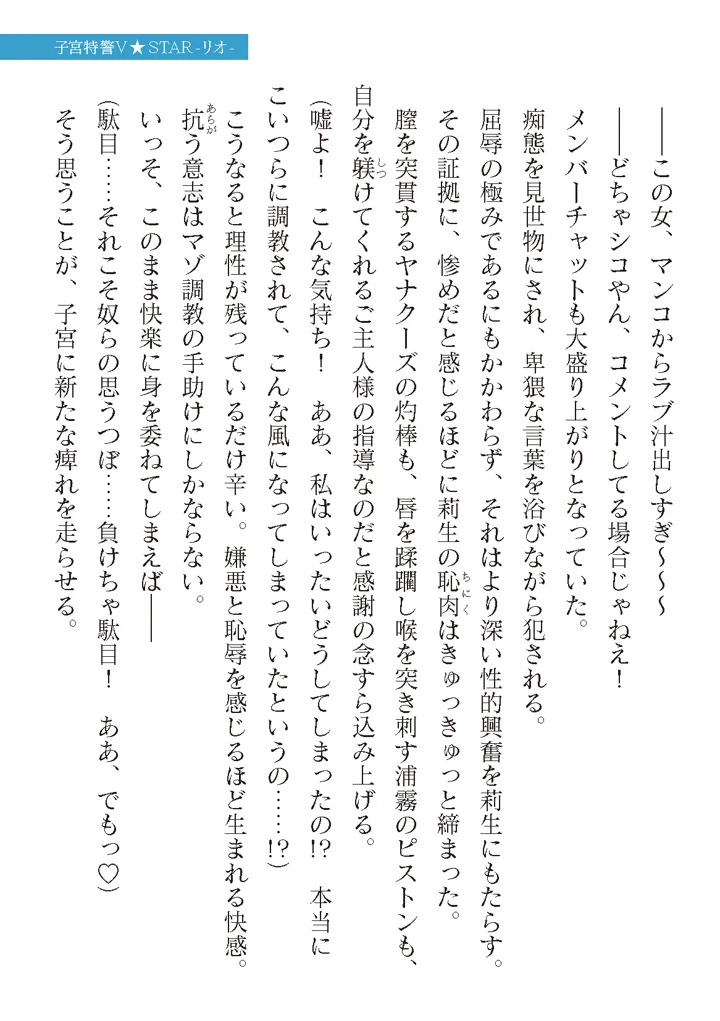 子宮特警V★STAR -リオ-
――この女、マンコからラブ汁出しすぎ～～～
――どちゃシコやん、コメントしてる場合じゃねえ！
メンバーチャットも大盛り上がりとなっていた。
痴態を見世物にされ、卑猥な言葉を浴びながら犯される。
屈辱の極みであるにもかかわらず、それはより深い性的興奮を莉生にもたらす。
その証拠に、惨めだと感じるほどに莉生の恥肉はきゅっきゅっと締まった。
ちにく
膣を突貫するヤナクーズの灼棒も、唇を蹂躙し喉を突き刺す浦霧のピストンも、
自分を躾けてくれるご主人様の指導なのだと感謝の念すら込み上げる。
しつ
（嘘よ！　こんな気持ち！　ああ、私はいったいどうしてしまったの!?　本当に
こいつらに調教されて、こんな風になってしまっていたというの……!?）
こうなると理性が残っているだけ辛い。嫌悪と恥辱を感じるほど生まれる快感。
抗う意志はマゾ調教の手助けにしかならない。
あらが
いっそ、このまま快楽に身を委ねてしまえば――
（駄目……それこそ奴らの思うつぼ……負けちゃ駄目！　ああ、でもっ♡）
そう思うことが、子宮に新たな痺れを走らせる。